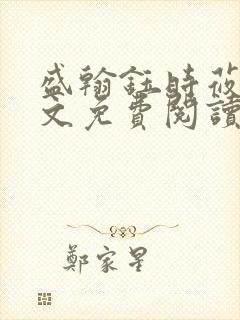 盛翰鈺時莜
文免費閱讀
鄭家星